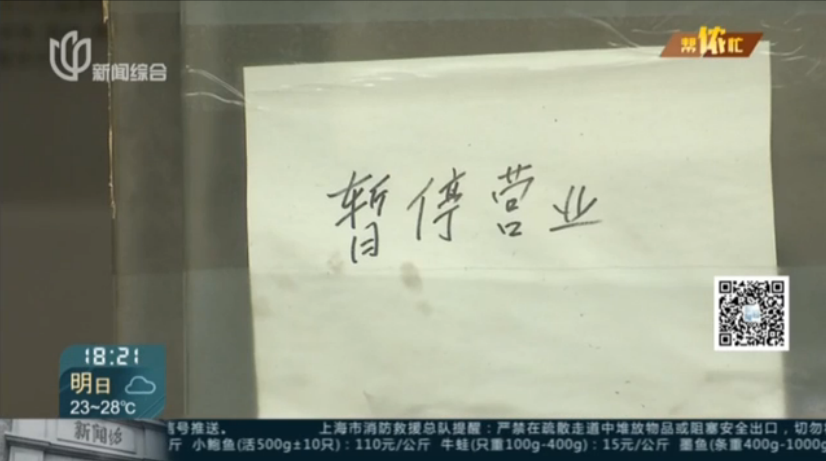 新闻综合
帮侬忙
暂停营业
18:21
明日
23~28℃
新闻坊
信号推送。 上海市消防救援总队提醒：严禁在疏散走道中堆放物品或阻塞安全出口，切勿
斤 小鲍鱼(活500g±10只)：110元/公斤 牛蛙(只重100g-400g)：15元/公斤 墨鱼(条重400g-1000g